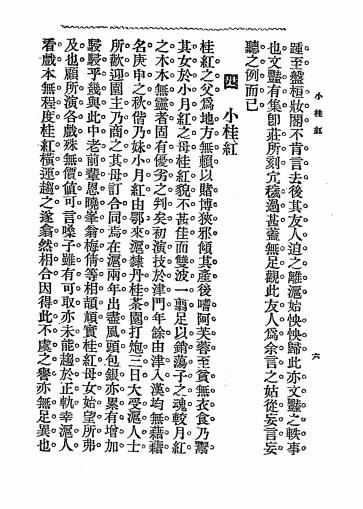 小桂紅
六
踵至盤桓妝閣不肯言去後其友人迫之離滬始怏怏歸此亦文豔之軼事
也文豔有集卽莊所刻宂穢過甚蓋無足觀此友人爲余言之姑從妄言妄
聽之例而已
四　小桂紅
桂紅之父爲地方無賴以賭博狹邪傾其產後嗜阿芙蓉至貧無衣食乃鬻
其女於小月紅之母桂紅貌不甚佳而雙波一翦足以銷蕩子之魂較月紅
之木木無靈者固有優劣之判矣初演技於津門年餘由津入漢均無藉藉
名庚申之秋偕乃妹小月紅由鄂來滬隸丹桂茶園打炮三日大受滬人士
所歡迎園主乃商之其母訂合同焉在滬兩年出盡風頭包銀亦累有增加
駸駸乎幾與此中老前輩恩曉峯翁梅倩等相頡頏實桂紅母女始望所弗
及也顧所演各戲殊無價值可言嗓子雖有可取亦未能趨於正軌幸滬人
看戲本無程度桂紅橫逕趨之遂翕然相合因得此不虞之譽亦無足異也